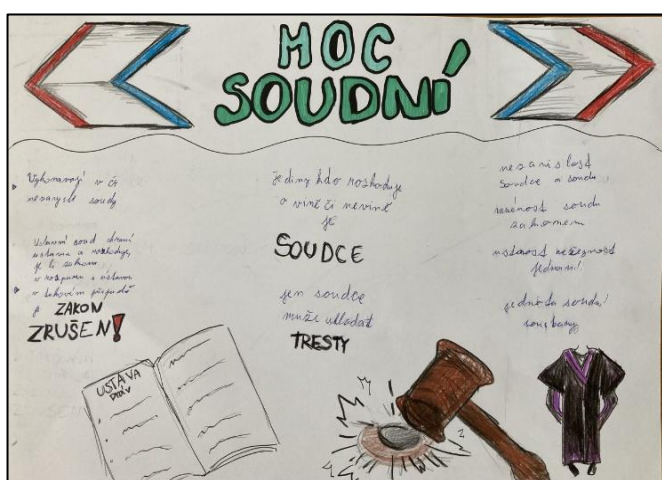 MOC
SOUDNÍ
Vykonávají v čr
nezávyslé soudy
Ústavní soud chrání
ústavu a rozhoduje,
je li zákon
v rozporu s ústavou
v takovém případě
je ZÁKON
ZRUŠEN!
jediný kdo rozhoduje
o vině či nevině
je
SOUDCE
jen soudce
může ukládat
TRESTY
nezávislost
soudce a soudu
vázanost soudu
zákonem
ústnost veřejnost
jednání
jednota soudní
soustavy
ÚSTAVA
práv